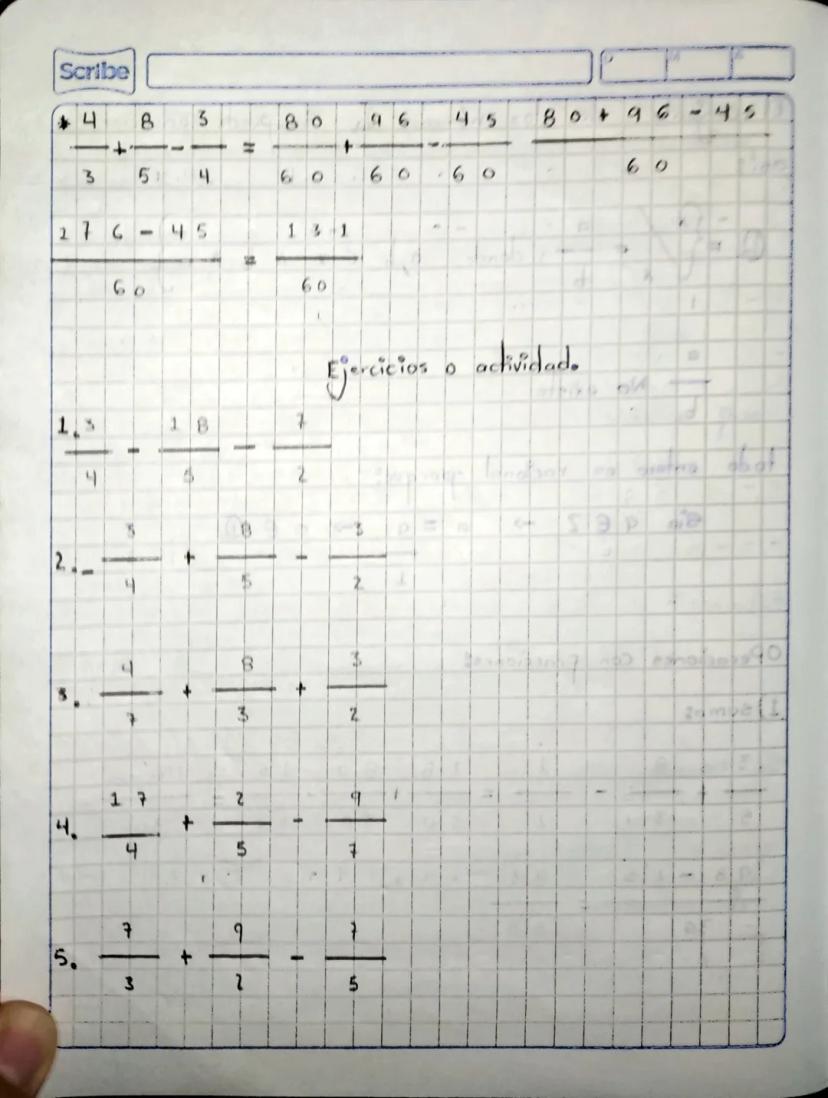 Scribe
4/3 + 8/5 - 3/4 = 80/60 + 96/60 - 45/60 80+96-45/60
276-45/60 = 131/60
Ejercicios o actividad.
1. 3/4 - 18/5 - 7/2
2. - 3/4 + 8/5 - 3/2
3. 4/7 + 8/3 + 3/2
4. 17/4 + 2/5 - 9/7
5. 7/3 + 9/2 - 7/5